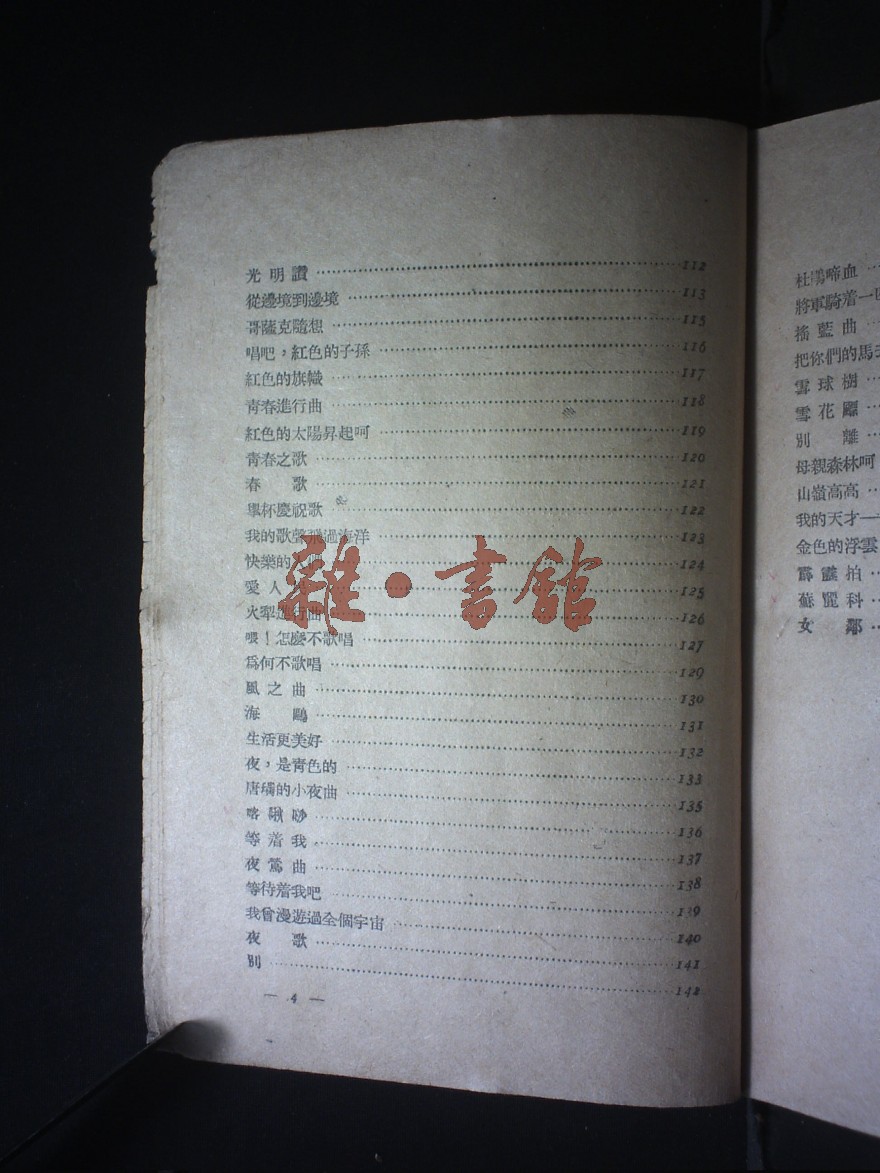 光明讚 112
從邊境到邊境 113
哥薩克隨想 115
唱吧，紅色的子孫 116
紅色的旗幟 117
青春進行曲 118
紅色的太陽昇起呵 119
青春之歌 120
春 歌 121
舉杯慶祝歌 122
我的歌聲飛過海洋 123
快樂的 124
愛人 125
火犂進行曲 126
喂！怎麼不歌唱 127
爲何不歌唱 129
風之曲 130
海 鷗 131
生活更美好 132
夜，是青色的 133
唐璜的小夜曲 135
喀啾 136
等着我 137
夜鶯曲 138
等待着我吧 139
我曾漫遊過全個宇宙 140
夜 歌 141
別 142
— 4 —
杜鵑啼血
將軍騎着一
搖籃曲
把你們的馬
雪球樹
雪花飄
別 離
母親森林呵
山嶺高高
我的天才—
金色的浮雲
霹靂拍
蘇麗科
女 鄰
雜·書館